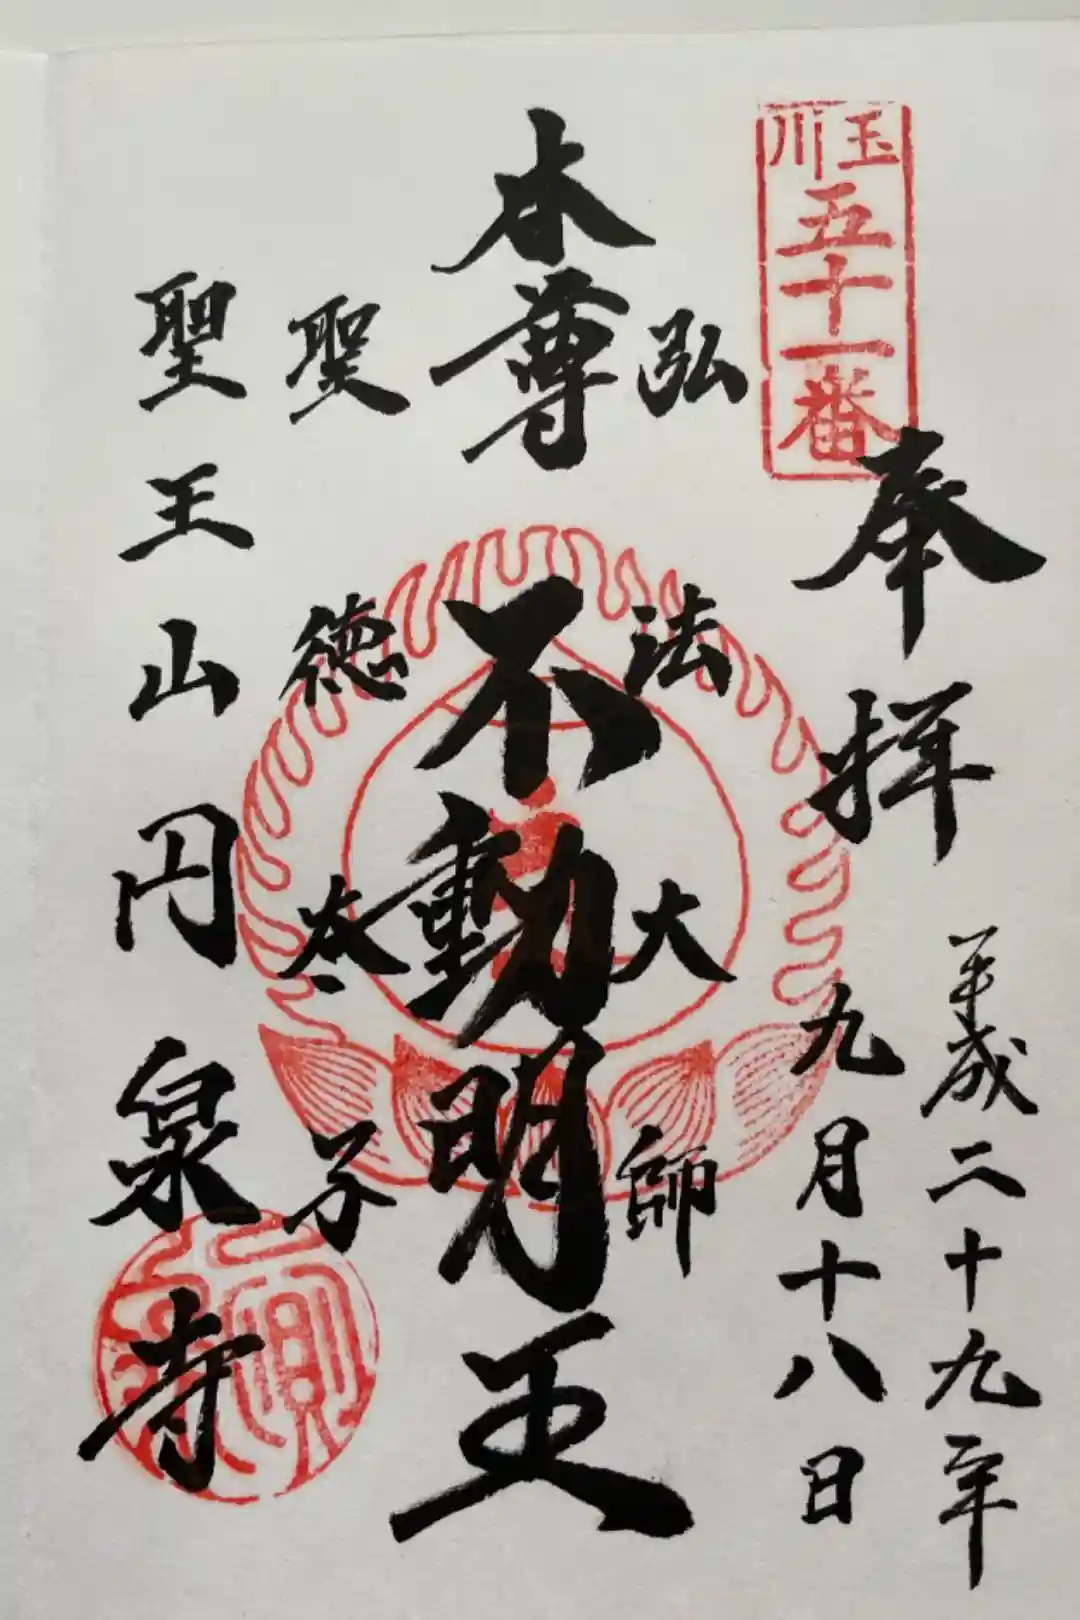 玉川
五十一番
奉拝
平成二十九年
九月十八日
弘法大師
本尊
不動明王
聖徳太子
聖王山円泉寺